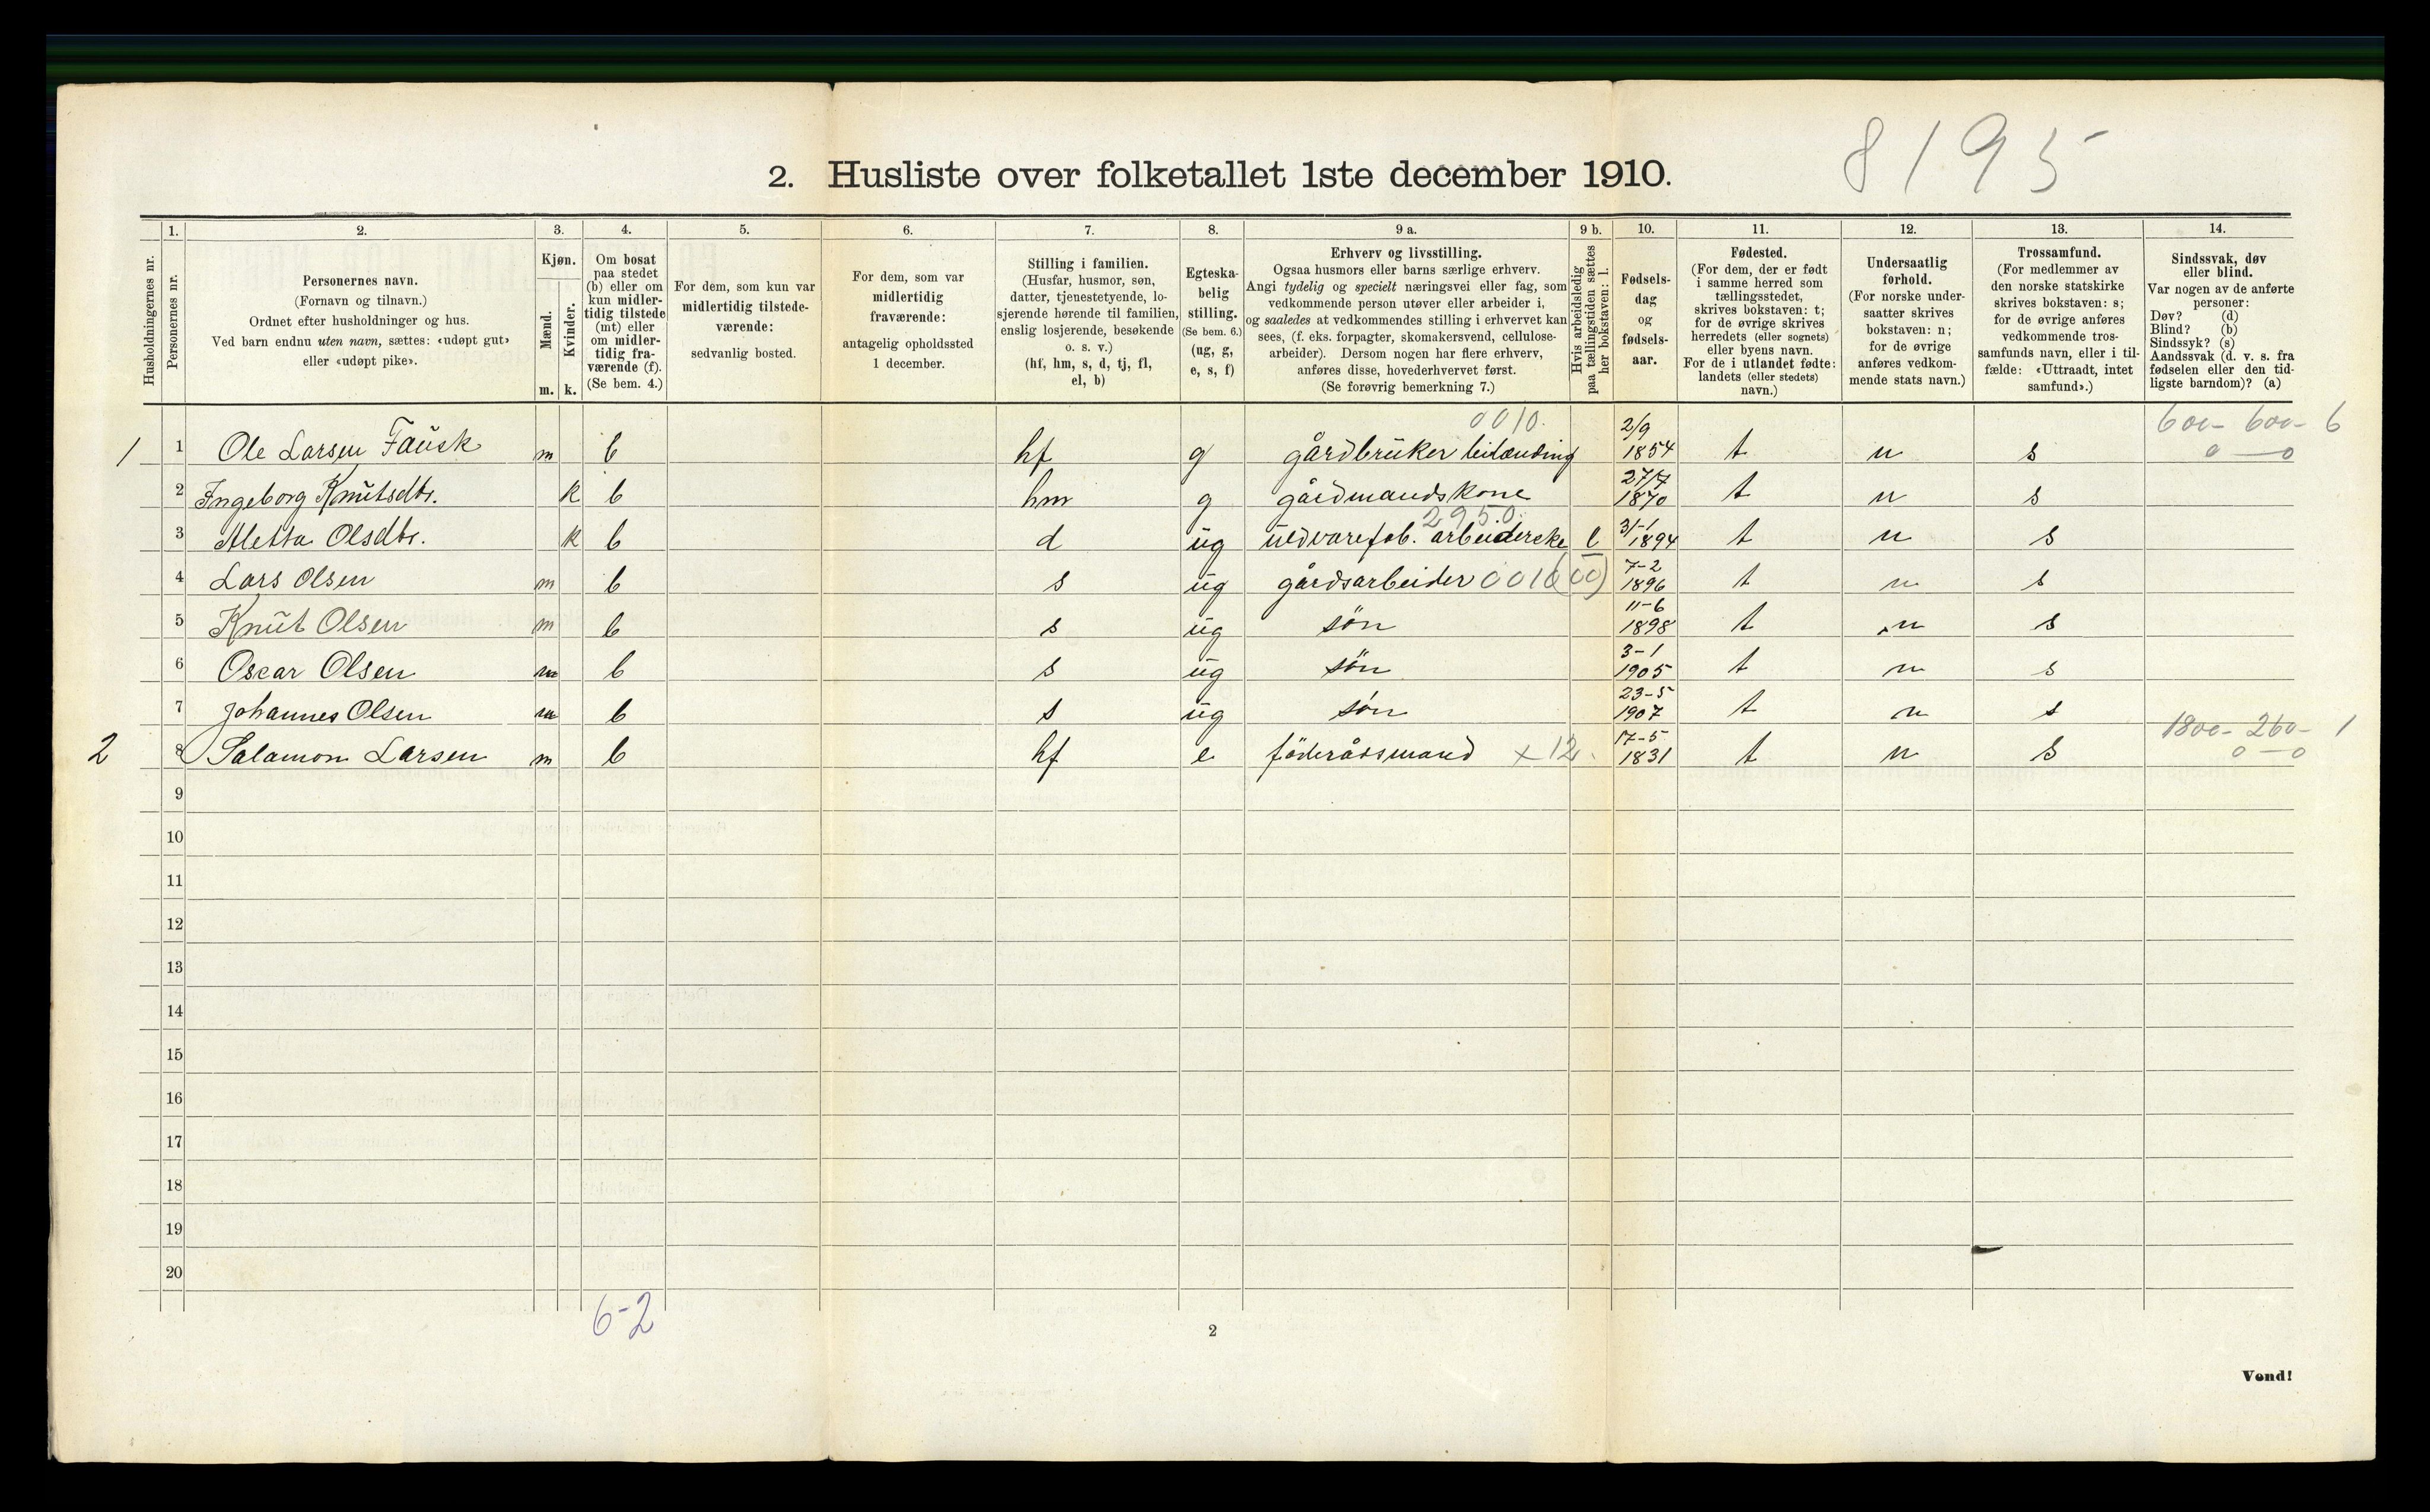 8195
2. Husliste over folketallet 1ste december 1910.
Husholdningernes nr.
1. Personernes nr.
2. Personernes navn.
(Fornavn og tilnavn.)
Ordnet efter husholdninger og hus.
Ved barn endnu uten navn, sættes: «udøpt gut»
eller «udøpt pike».
3. Kjøn.
Mænd. m.
Kvinder. k.
4. Om bosat
paa stedet
(b) eller om
kun midler-
tidig tilstede
(mt) eller
om midler-
tidig fra-
værende (f).
(Se bem. 4.)
5. For dem, som kun var
midlertidig tilstede-
værende:
sedvanlig bosted.
6. For dem, som var
midlertidig
fraværende:
antagelig opholdssted
1 december.
7. Stilling i familien.
(Husfar, husmor, søn,
datter, tjenestetyende, lo-
sjerende hørende til familien,
enslig losjerende, besøkende
o. s. v.)
(hf, hm, s, d, tj, fl,
el, b)
8. Egteska-
belig
stilling.
(Se bem. 6.)
(ug, g,
e, s, f)
9 a. Erhverv og livsstilling.
Ogsaa husmors eller barns særlige erhverv.
Angi tydelig og specielt næringsvei eller fag, som
vedkommende person utøver eller arbeider i,
og saaledes at vedkommendes stilling i erhvervet kan
sees, (f. eks. forpagter, skomakersvend, cellulose-
arbeider). Dersom nogen har flere erhverv,
anføres disse, hovederhvervet først.
(Se forøvrig bemerkning 7.)
9 b. Hvis arbeidsledig
paa tællingstiden sættes
her bokstaven: l.
10. Fødsels-
dag
og
fødsels-
aar.
11. Fødested.
(For dem, der er født
i samme herred som
tællingsstedet,
skrives bokstaven: t;
for de øvrige skrives
herredets (eller sognets)
eller byens navn.
For de i utlandet fødte:
landets (eller stedets)
navn.)
12. Undersaatlig
forhold.
(For norske under-
saatter skrives
bokstaven: n;
for de øvrige
anføres vedkom-
mende stats navn.)
13. Trossamfund.
(For medlemmer av
den norske statskirke
skrives bokstaven: s;
for de øvrige anføres
vedkommende tros-
samfunds navn, eller i til-
fælde: «Uttraadt, intet
samfund».)
14. Sindssvak, døv
eller blind.
Var nogen av de anførte
personer:
Døv? (d)
Blind? (b)
Sindssyk? (s)
Aandssvak (d. v. s. fra
fødselen eller den tid-
ligste barndom)? (a)
1 1 Ole Larsen Fausk m b hf g gårdbruker leilænding 0010. 2/9 1854 t n s 600- 600- 6 0—0
2 Ingeborg Knutsdtr. k b hm g gårdmandskone 27/7 1870 t n s
3 Aletta Olsdtr. k b d ug uldvarefab. arbeiderske 2950. l 31-1 1894 t n s
4 Lars Olsen m b s ug gårdsarbeider 0010(00) 7-2 1896 t n s
5 Knut Olsen m b s ug søn 11-6 1898 t n s
6 Oscar Olsen m b s ug søn 3-1 1905 t n s
7 Johannes Olsen m b s ug søn 23-5 1907 t n s
2 8 Salamon Larsen m b hf e föderådsmand x 12. 17-5 1831 t n s 1800- 260- 1 0—0
9
10
11
12
13
14
15
16
17
18
19
20
6-2
2
Vend!